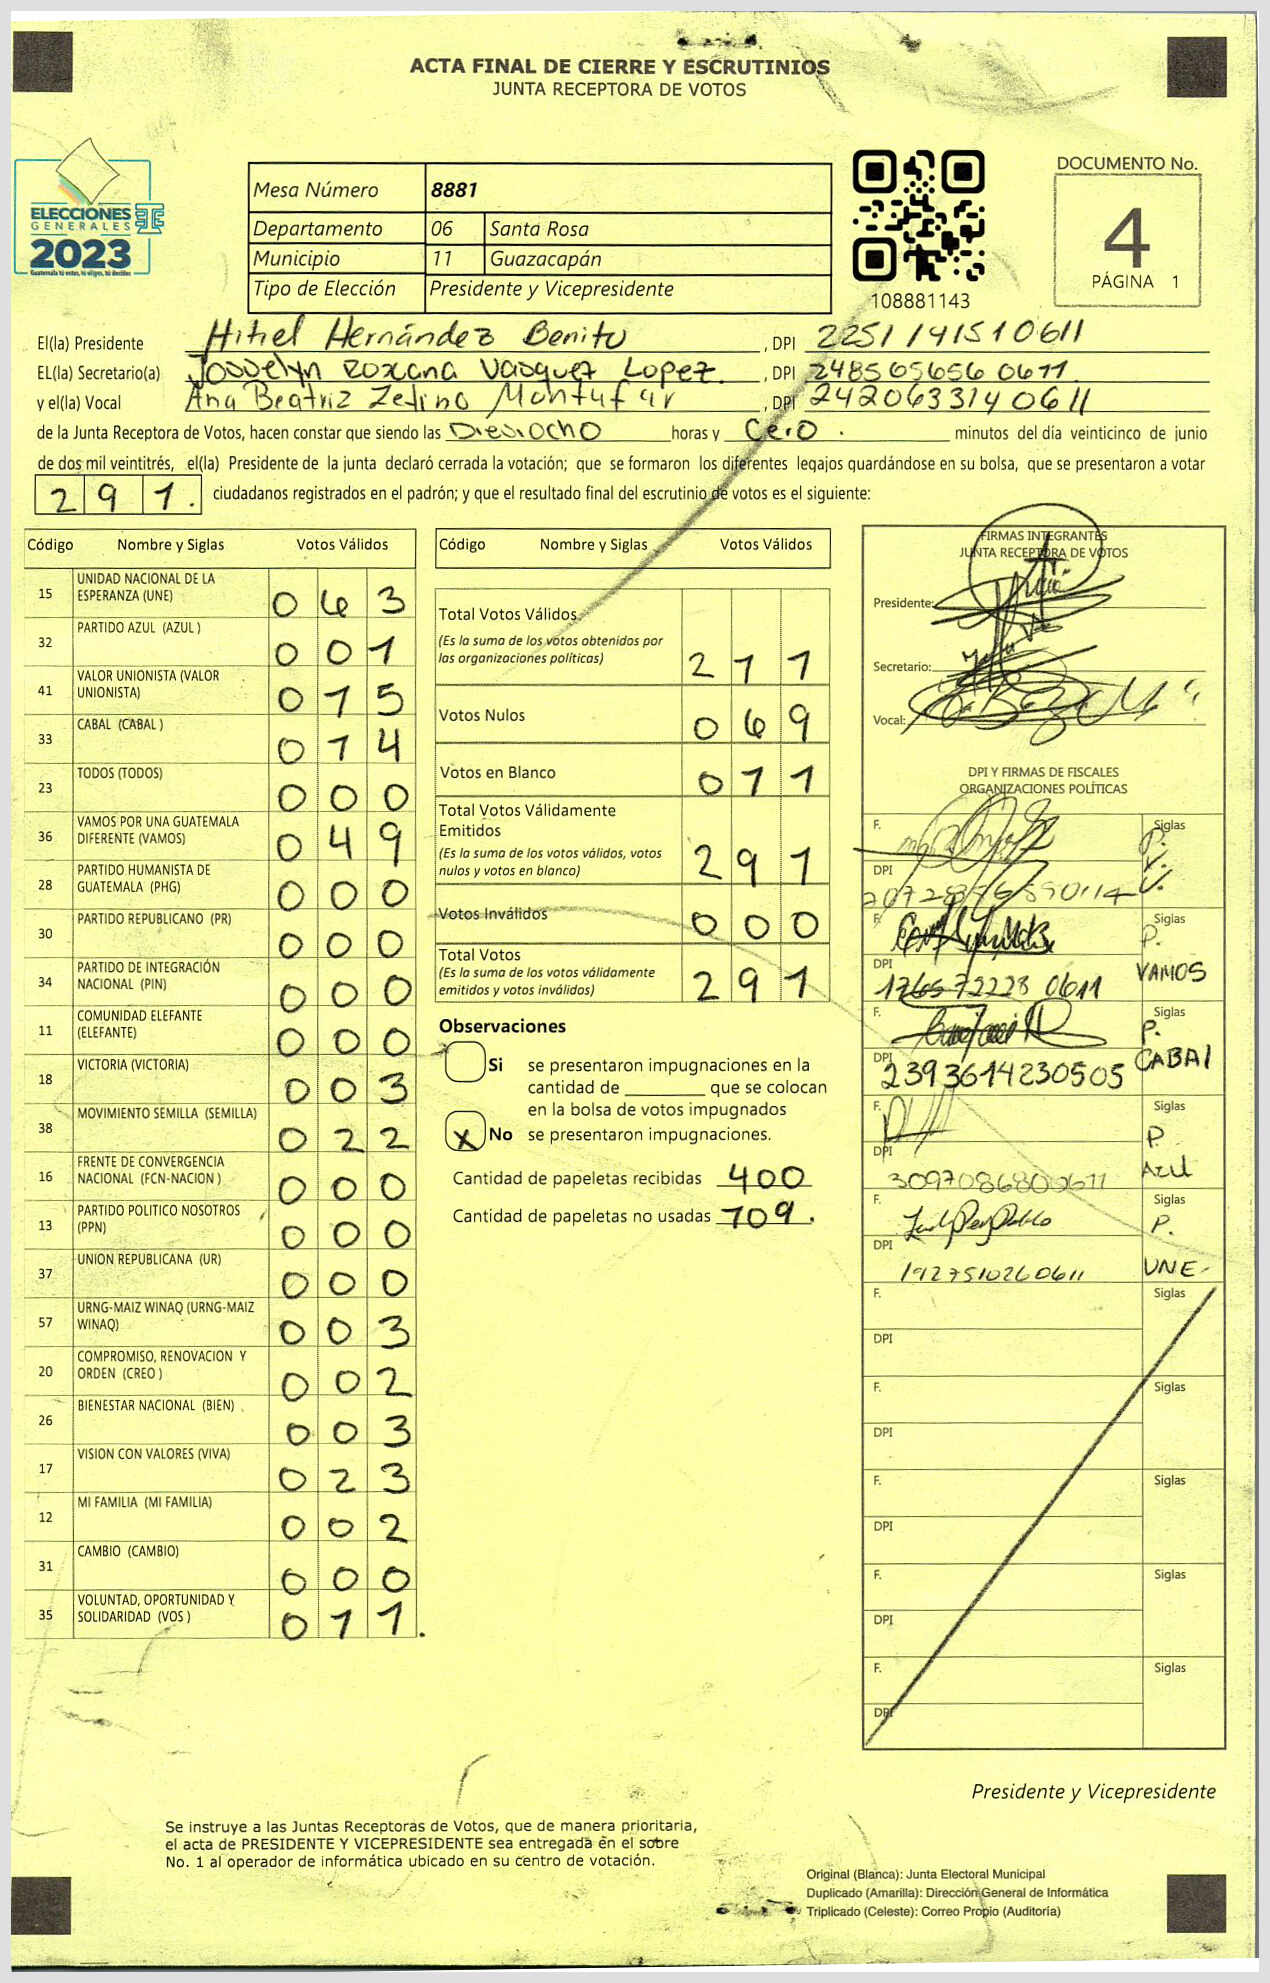 ACTA FINAL DE CIERRE Y ESCRUTINIOS
JUNTA RECEPTORA DE VOTOS
ELECCIONES
GENERALES
2023
Guatemala tú votas, tú eliges, tú decides
Mesa Número 8881
Departamento 06 Santa Rosa
Municipio 11 Guazacapán
Tipo de Elección Presidente y Vicepresidente
108881143
DOCUMENTO No.
4
PÁGINA 1
El(la) Presidente Hitiel Hernández Benito, DPI 2251141510611
EL(la) Secretario(a) Josselyn Roxana Vasquez Lopez, DPI 2485656560611
y el(la) Vocal Ana Beatriz Zetino Montufar, DPI 2420633140611
de la Junta Receptora de Votos, hacen constar que siendo las Dieciocho horas y Cero . minutos del día veinticinco de junio
de dos mil veintitrés, el(la) Presidente de la junta declaró cerrada la votación; que se formaron los diferentes legajos guardándose en su bolsa, que se presentaron a votar
291. ciudadanos registrados en el padrón; y que el resultado final del escrutinio de votos es el siguiente:
Código Nombre y Siglas Votos Válidos
15 UNIDAD NACIONAL DE LA ESPERANZA (UNE) 063
32 PARTIDO AZUL (AZUL ) 001
41 VALOR UNIONISTA (VALOR UNIONISTA) 015
33 CABAL (CABAL ) 014
23 TODOS (TODOS) 000
36 VAMOS POR UNA GUATEMALA DIFERENTE (VAMOS) 049
28 PARTIDO HUMANISTA DE GUATEMALA (PHG) 000
30 PARTIDO REPUBLICANO (PR) 000
34 PARTIDO DE INTEGRACIÓN NACIONAL (PIN) 000
11 COMUNIDAD ELEFANTE (ELEFANTE) 000
18 VICTORIA (VICTORIA) 003
38 MOVIMIENTO SEMILLA (SEMILLA) 022
16 FRENTE DE CONVERGENCIA NACIONAL (FCN-NACION ) 000
13 PARTIDO POLITICO NOSOTROS (PPN) 000
37 UNION REPUBLICANA (UR) 000
57 URNG-MAIZ WINAQ (URNG-MAIZ WINAQ) 003
20 COMPROMISO, RENOVACION Y ORDEN (CREO ) 002
26 BIENESTAR NACIONAL (BIEN) 003
17 VISION CON VALORES (VIVA) 023
12 MI FAMILIA (MI FAMILIA) 002
31 CAMBIO (CAMBIO) 000
35 VOLUNTAD, OPORTUNIDAD Y SOLIDARIDAD (VOS ) 011.
Código Nombre y Siglas Votos Válidos
Total Votos Válidos 211
(Es la suma de los votos obtenidos por
las organizaciones políticas)
Votos Nulos 069
Votos en Blanco 011
Total Votos Válidamente
Emitidos 291
(Es la suma de los votos válidos, votos
nulos y votos en blanco)
Votos Inválidos 000
Total Votos 291
(Es la suma de los votos válidamente
emitidos y votos inválidos)
Observaciones
Si se presentaron impugnaciones en la
cantidad de ________ que se colocan
en la bolsa de votos impugnados
X No se presentaron impugnaciones.
Cantidad de papeletas recibidas 400
Cantidad de papeletas no usadas 109.
FIRMAS INTEGRANTES
JUNTA RECEPTORA DE VOTOS
Presidente:
Secretario:
Vocal:
DPI Y FIRMAS DE FISCALES
ORGANIZACIONES POLÍTICAS
F. Siglas P. V. U.
DPI
F. Siglas P. VAMOS
DPI 1765722280611
F. Siglas P. CABAl
DPI 2393614230505
F. Siglas P. Azul
DPI 3097086800611
F. Siglas P. UNE-
DPI 1927510260611
F. Siglas
DPI
F. Siglas
DPI
F. Siglas
DPI
F. Siglas
DPI
F. Siglas
DPI
Presidente y Vicepresidente
Se instruye a las Juntas Receptoras de Votos, que de manera prioritaria,
el acta de PRESIDENTE Y VICEPRESIDENTE sea entregada en el sobre
No. 1 al operador de informática ubicado en su centro de votación.
Original (Blanca): Junta Electoral Municipal
Duplicado (Amarilla): Dirección General de Informática
Triplicado (Celeste): Correo Propio (Auditoría)